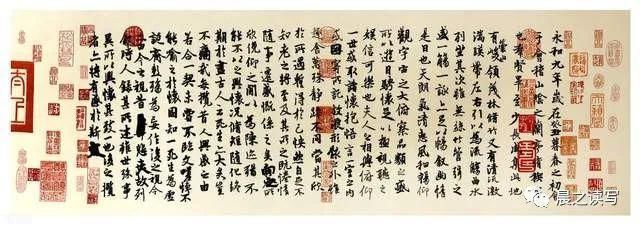 永和九年歲在癸丑暮春之初會
于會稽山陰之蘭亭脩稧事
也群賢畢至少長咸集此地
有峻領茂林脩竹又有清流激
湍暎帶左右引以為流觴曲水
列坐其次雖無絲竹管弦之
盛一觴一詠亦足以暢敘幽情
是日也天朗氣清惠風和暢仰
觀宇宙之大俯察品類之盛
所以遊目騁懷足以極視聽之
娛信可樂也夫人之相與俯仰
一世或取諸懷抱悟言一室之內
或因寄所託放浪形骸之外雖
趣舍萬殊靜躁不同當其欣
於所遇暫得於己快然自足不
知老之將至及其所之既惓情
隨事遷感慨係之矣向之所
欣俛仰之間以為陳迹猶不
能不以之興懷況脩短隨化終
期於盡古人云死生亦大矣豈
不痛哉每攬昔人興感之由
若合一契未嘗不臨文嗟悼不
能喻之於懷固知一死生為虛
誕齊彭殤為妄作後之視今
亦由今之視昔悲夫故列
敘時人錄其所述雖世殊事
異所以興懷其致一也後之攬
者亦將有感於斯文
晨之读写